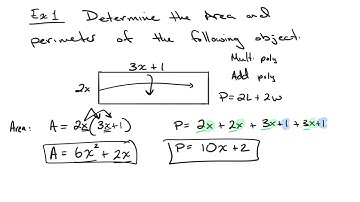 Ex 1 Determine the Area and
perimeter of the following object.
Mult. poly
Add poly
P=2L+2W
3x+1
2x
Area: A = 2x(3x+1)
A = 6x² + 2x
P= 2x + 2x + 3x+1 + 3x+1
P= 10x+2